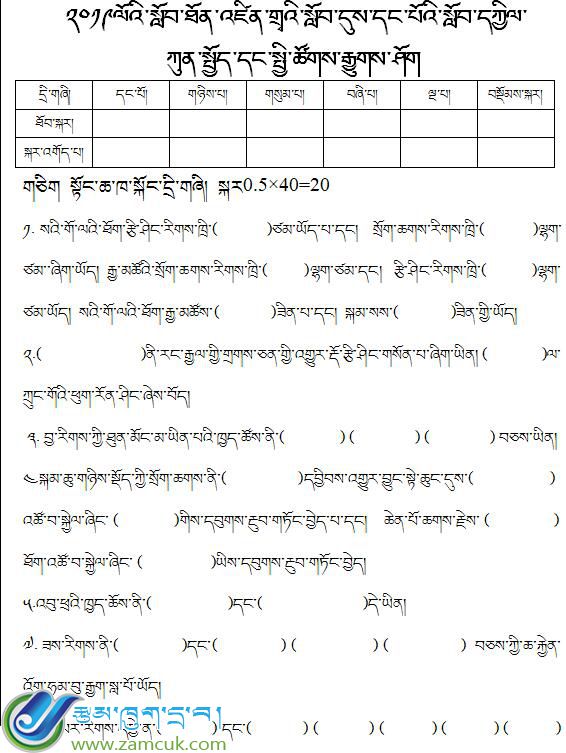 ༢༠༡༩ལོའི་སློབ་ཐོན་འཛིན་གྲྭའི་སློབ་དུས་དང་པོའི་སློབ་དཀྱིལ་
ཀུན་སྤྱོད་དང་སྤྱི་ཚོགས་རྒྱུགས་ཤོག
དྲི་གཞི། དང་པོ། གཉིས་པ། གསུམ་པ། བཞི་པ། ལྔ་པ། བསྡོམས་སྐར།
ཐོབ་སྐར།
སྐར་འགོད་པ།
གཅིག སྟོང་ཆ་ཁ་སྐོང་དྲི་གཞི། སྐར0.5×40=20
༡. སའི་གོ་ལའི་ཐོག་རྩི་ཤིང་རིགས་ཁྲི་( )ཙམ་ཡོད་པ་དང། སྲོག་ཆགས་རིགས་ཁྲི་( )ལྷག་
ཙམ་ཞིག་ཡོད། རྒྱ་མཚོའི་སྲོག་ཆགས་རིགས་ཁྲི་( )ལྷག་ཙམ་དང། རྩི་ཤིང་རིགས་ཁྲི་( )ལྷག་
ཙམ་ཡོད། སའི་གོ་ལའི་ཐོག་རྒྱ་མཚོས་( )ཟིན་པ་དང། སྐམ་སས་( )ཟིན་གྱི་ཡོད།
༢.( )ནི་རང་རྒྱལ་གྱི་གྲགས་ཅན་གྱི་འགྱུར་རྡོ་རྩི་ཤིང་གསོན་པ་ཞིག་ཡིན། ( )ལ་
ཀྲུང་གོའི་ཕུག་རོན་ཤིང་ཞེས་བོད།
༣. བྱ་རིགས་ཀྱི་ཐུན་མོང་མ་ཡིན་པའི་ཁྱད་ཆོས་ནི་( ) ( ) ( ) བཅས་ཡིན།
༤.སྐམ་ཆུ་གཉིས་སྡོད་ཀྱི་སྲོག་ཆགས་ནི་( )དབྱིབས་འགྱུར་བྱུང་སྟེ་ཆུང་དུས་( )
འཚོ་བ་སྐྱེལ་ཞིང་ ( )གིས་དབུགས་རྔུབ་གཏོང་བྱེད་པ་དང། ཆེན་པོ་ཆགས་རྗེས་ ( )
ཐོག་འཚོ་བ་སྐྱེལ་ཞིང་ ( )ཡིས་དབུགས་རྔུབ་གཏོང་བྱེད།
༥.འབུ་ཕྲའི་ཁྱད་ཆོས་ནི་( )དང་( )དེ་ཡིན།
༦. ཟས་རིགས་ནི་( )དང་( ) ( ) ( ) བཅས་ཀྱི་ཆ་རྐྱེན་
འོག་ཧམ་བུ་རྒྱག་སླ་པོ་ཡོད།
( )དང་( ) ( ) ( ) ( )
རྫམ་ཁུག་དྲ་བ།
www.zamcuk.com